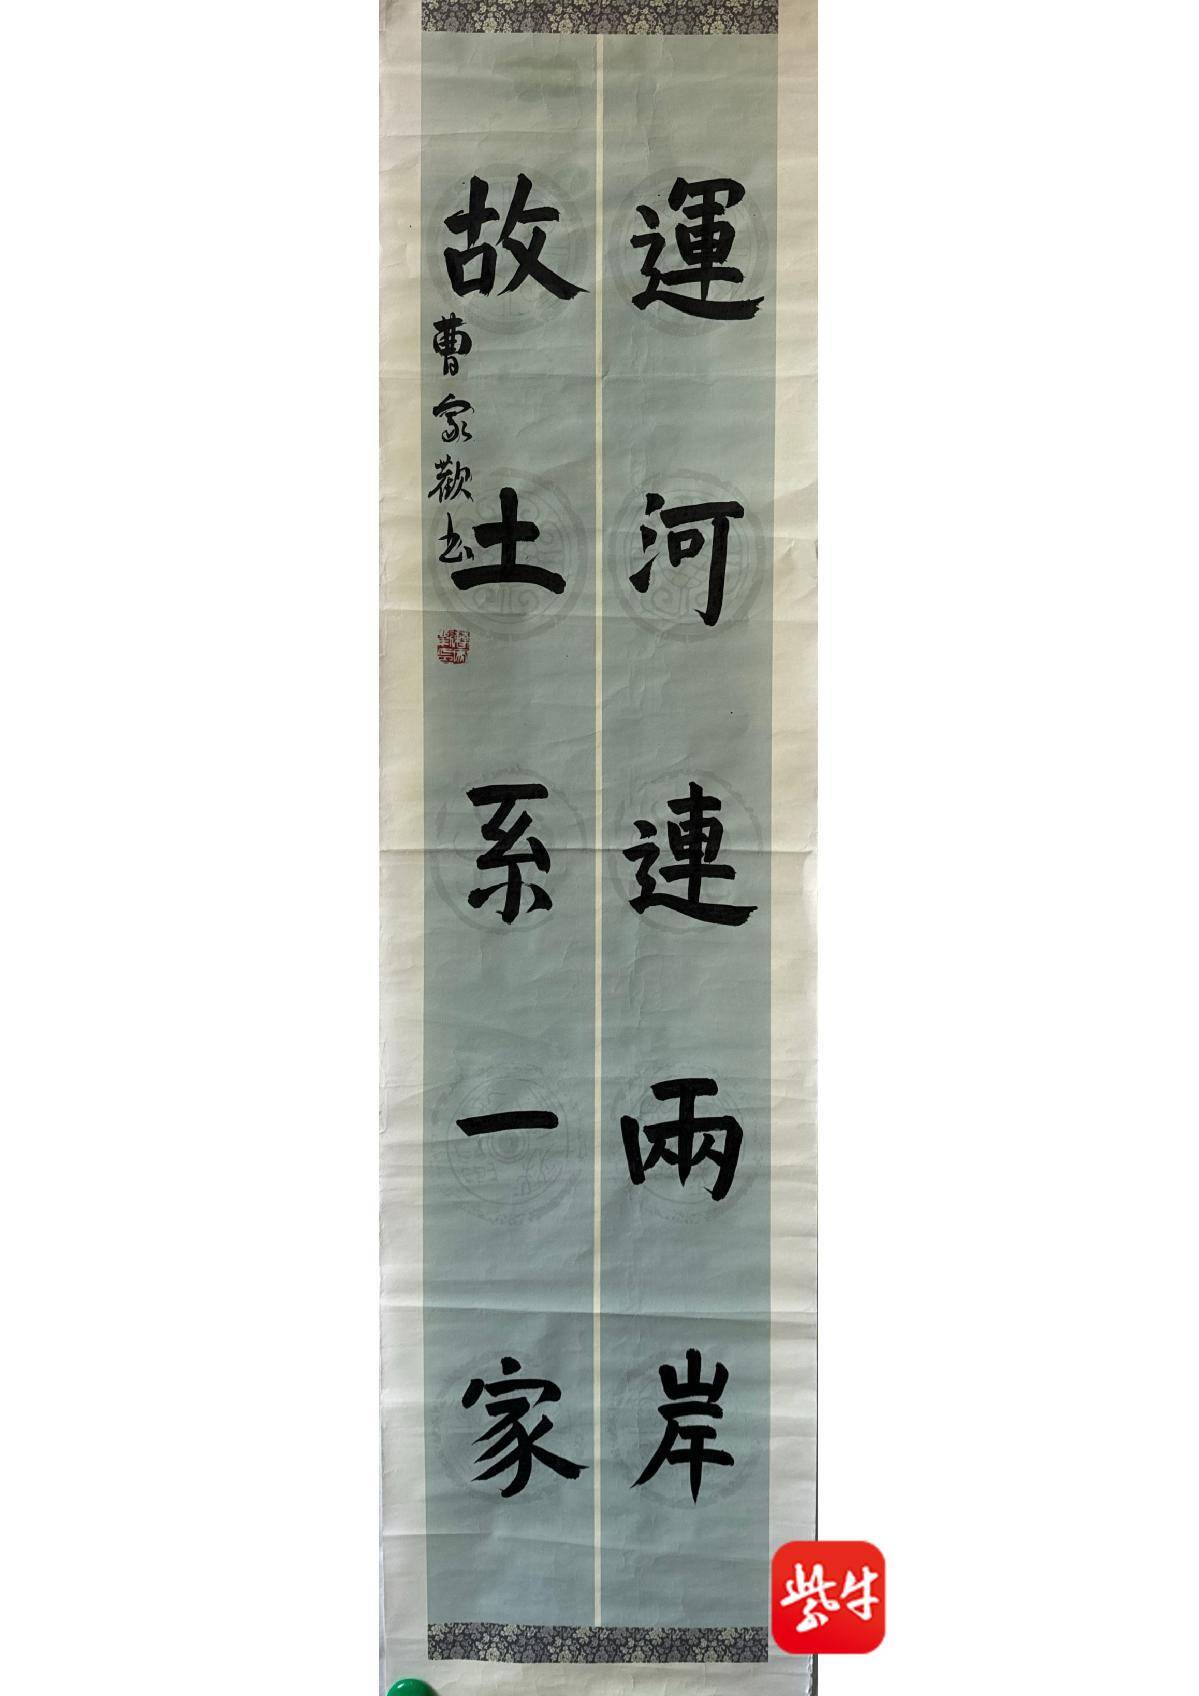 運河連兩岸
故土系一家
曹家歡书
紫牛